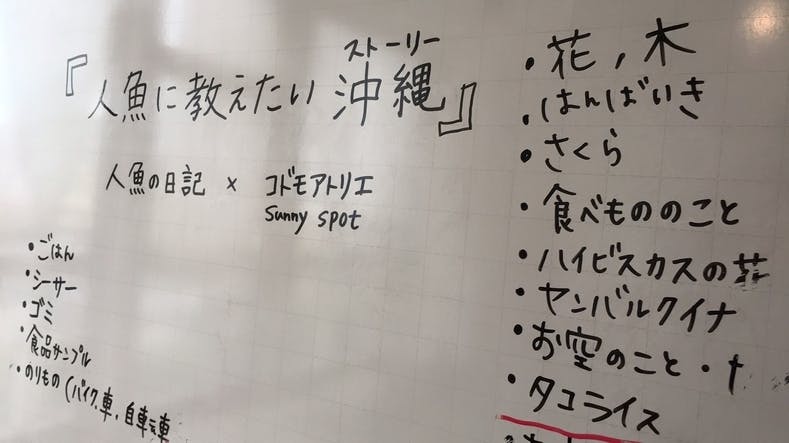 ストーリー
『人魚に教えたい 沖縄』
人魚の日記 × コドモアトリエ
Sunny spot
・ごはん
・シーサー
・ゴミ
・食品サンプル
・のりもの (バイク、車、自転車
・花,木
・はんばいき
・さくら
・食べもののこと
・ハイビスカスの花
・ヤンバルクイナ
・お空のこと・
・タコライス